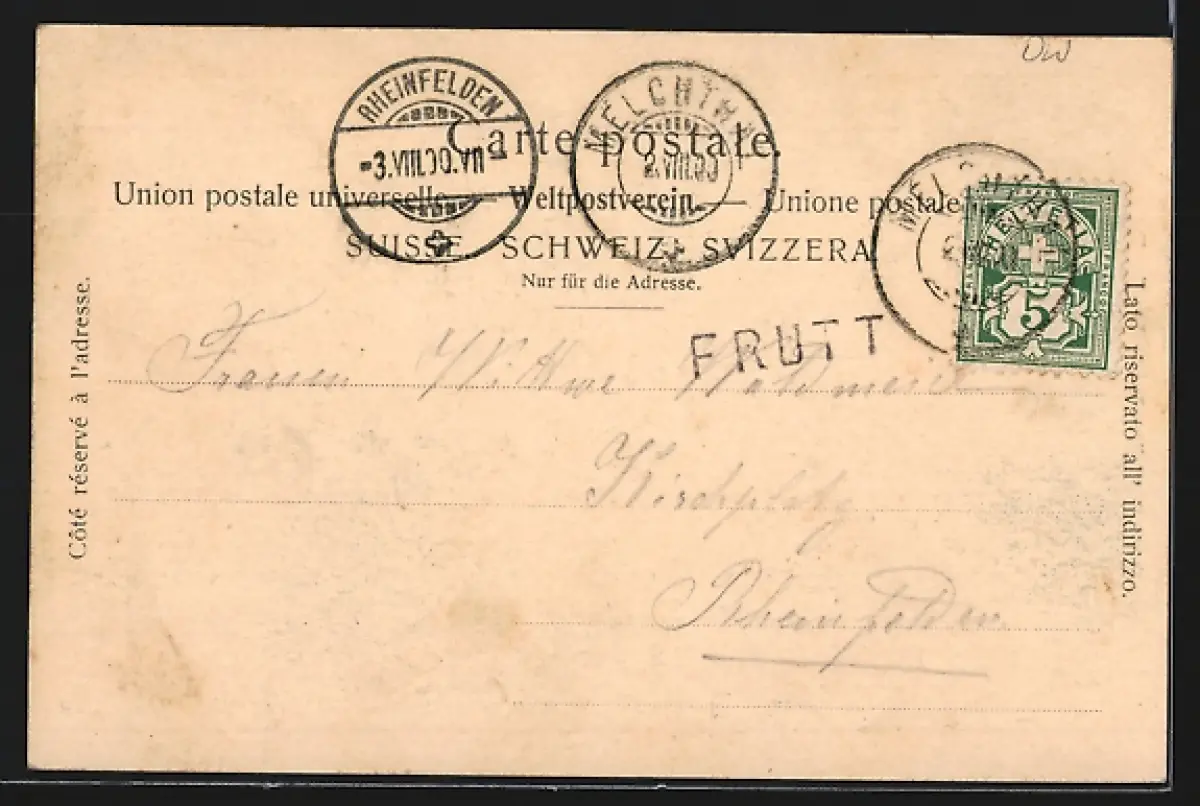 OW
RHEINFELDEN
-3.VIII.00.VII
MELCHTHAL
2.VIII.00
Carte postale.
Union postale universelle. — Weltpostverein. — Unione postale
SUISSE. SCHWEIZ. SVIZZERA.
Nur für die Adresse.
Côté réservé à l'adresse.
Lato riservato all' indirizzo.
MELCHTHAL
HELVETIA
5
FRUTT
Frauen Wittwe
Kirchplatz
Rheinfelden